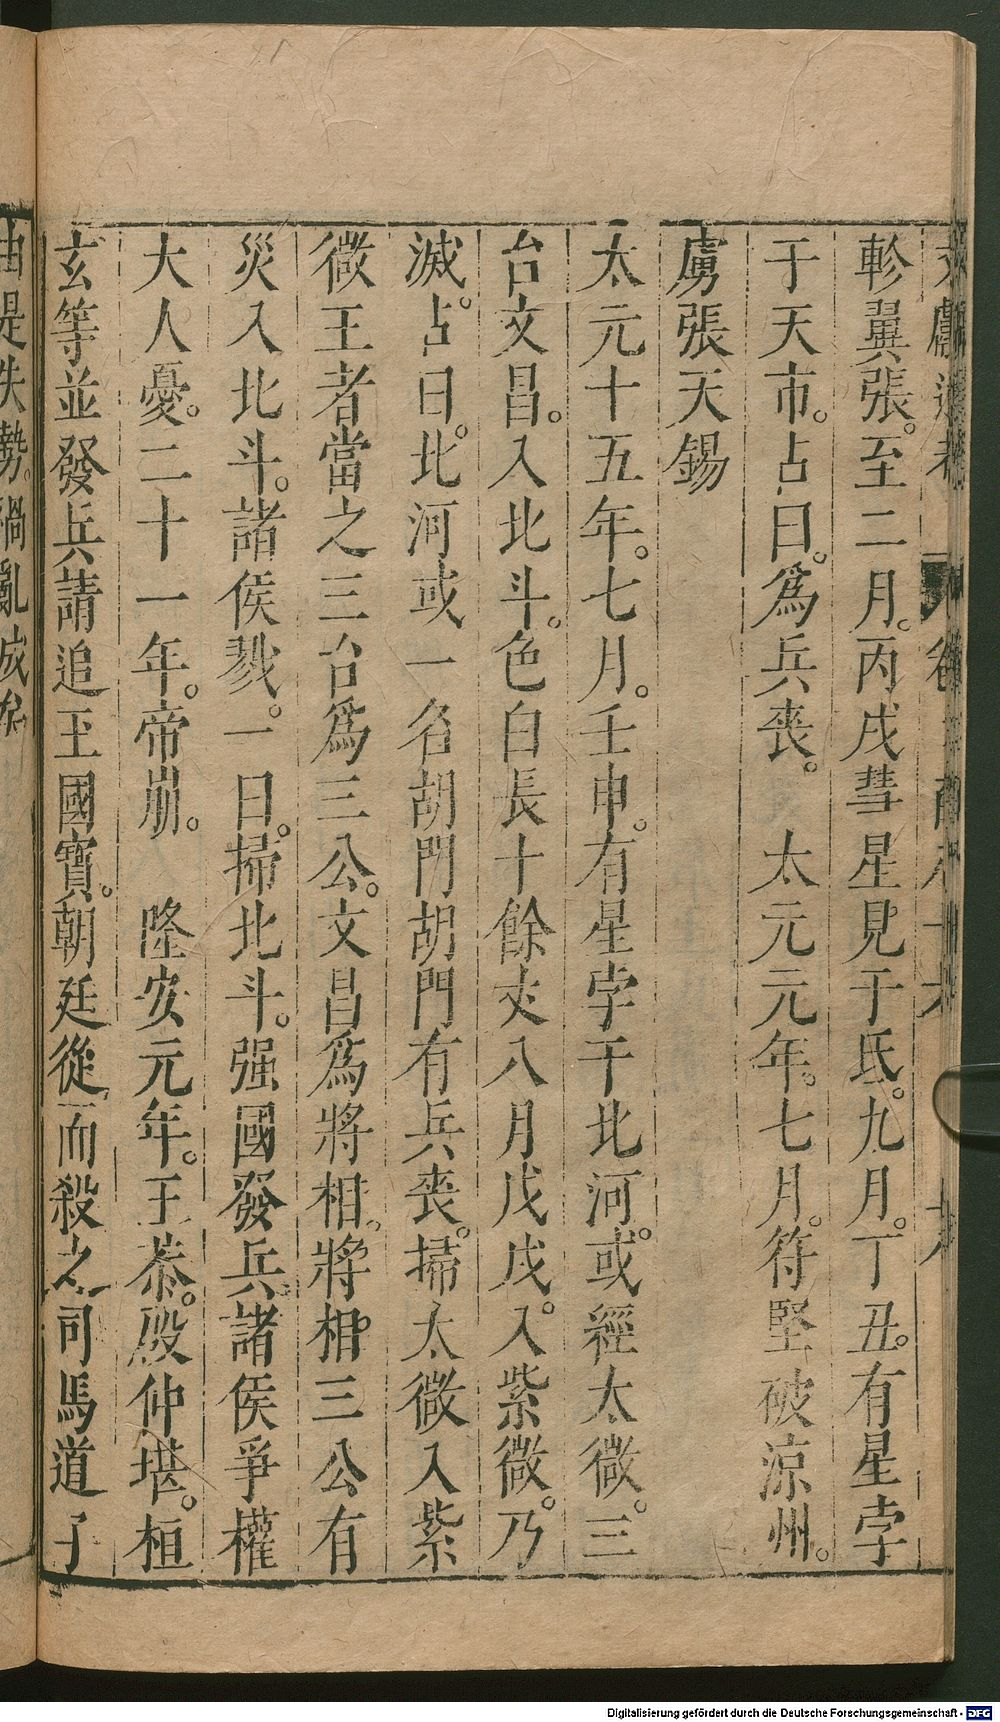 軫翼張。至二月。丙戌彗星見于氐。九月。丁丑。有星孛
于天市。占曰。為兵喪。　太元元年。七月。符堅破涼州。
虜張天錫
太元十五年。七月。壬申。有星孛于北河。或經太微。三
台文昌。入北斗。色白長十餘丈八月戊戌。入紫微。乃
滅。占曰。北河或一名胡門胡門有兵喪。掃太微入紫
微王者當之三台為三公。文昌為將相。將相三公有
災入北斗。諸侯戮。一曰。掃北斗。强國發兵。諸侯爭權
大人憂。二十一年。帝崩。　隆安元年。王恭。殷仲堪。桓
玄等並發兵請追王國寶。朝廷從而殺之司馬道子
由是失勢。禍亂成矣。
Digitalisierung gefördert durch die Deutsche Forschungsgemeinschaft - DFG